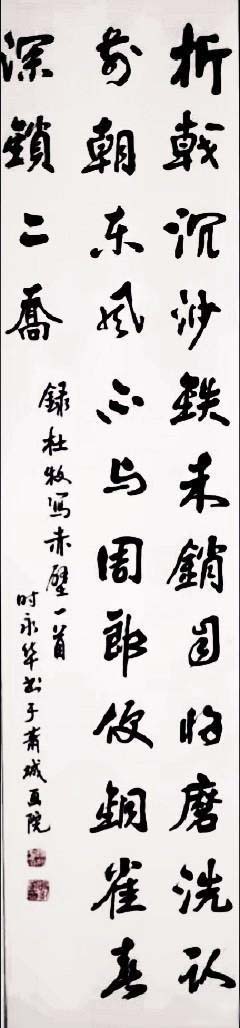 折戟沉沙铁未銷自将磨洗认
前朝东风不与周郎便銅雀春
深鎖二喬
録杜牧写赤壁一首
时永华书于青城画院